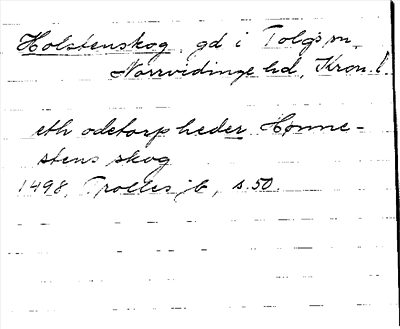 Holstenskog, gd i Tolgs sn.
Norrvidinge hd, Kron. l.
eth odetorp heder Hømne-
stens skog
1498, Trolles jb, s. 50.